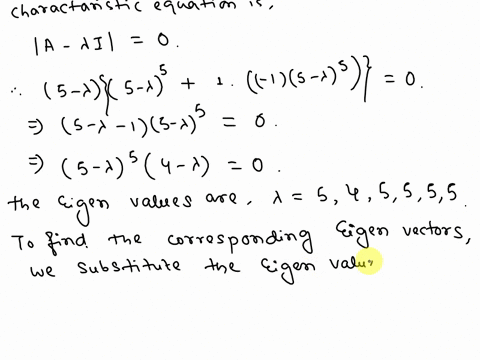 charactaristic equation is,
|A - λI| = 0.
∴ (5-λ)^5{(5-λ)^5 + 1. ((-1)(5-λ)^5)} = 0.
⇒ (5-λ-1)(5-λ)^5 = 0.
⇒ (5-λ)^5 (4-λ) = 0.
the Eigen values are, λ = 5, 4, 5, 5, 5, 5.
To find the corresponding Eigen vectors,
we substitute the Eigen value